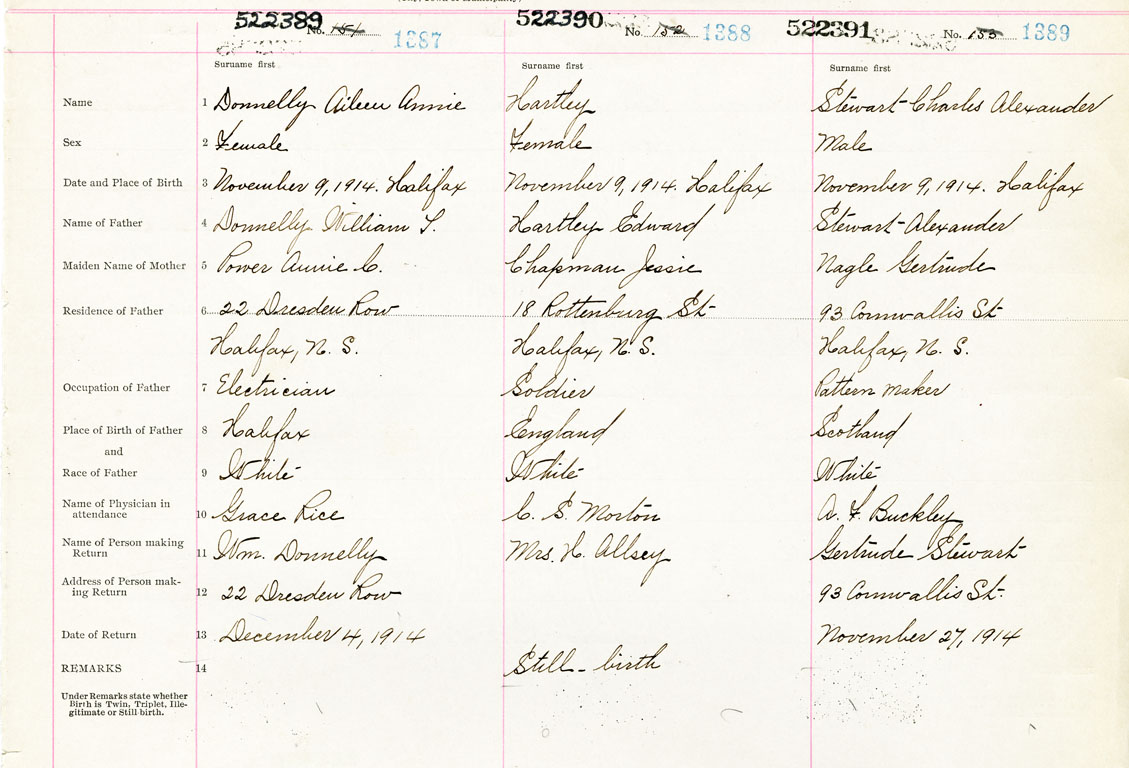 (City, Town or Municipality)
522389 No. 151 1387 522390 No. 152 1388 522391 No. 153 1389
Surname first Surname first Surname first
Name 1 Donnelly Aileen Annie Hartley Stewart Charles Alexander
Sex 2 Female Female Male
Date and Place of Birth 3 November 9, 1914. Halifax November 9, 1914. Halifax November 9, 1914. Halifax
Name of Father 4 Donnelly William T. Hartley Edward Stewart Alexander
Maiden Name of Mother 5 Power Annie C. Chapman Jessie Nagle Gertrude
Residence of Father 6 22 Dresden Row 18 Rottenburg St 93 Cornwallis St
Halifax, N. S. Halifax, N. S. Halifax, N. S.
Occupation of Father 7 Electrician Soldier Pattern maker
Place of Birth of Father 8 Halifax England Scotland
and
Race of Father 9 White White White
Name of Physician in
attendance 10 Grace Rice C. S. Morton A. F. Buckley
Name of Person making
Return 11 Wm. Donnelly Mrs. H. Allsey Gertrude Stewart
Address of Person mak-
ing Return 12 22 Dresden Row 93 Cornwallis St.
Date of Return 13 December 4, 1914 November 27, 1914
REMARKS 14 Still-birth
Under Remarks state whether
Birth is Twin, Triplet, Ille-
gitimate or Still-birth.